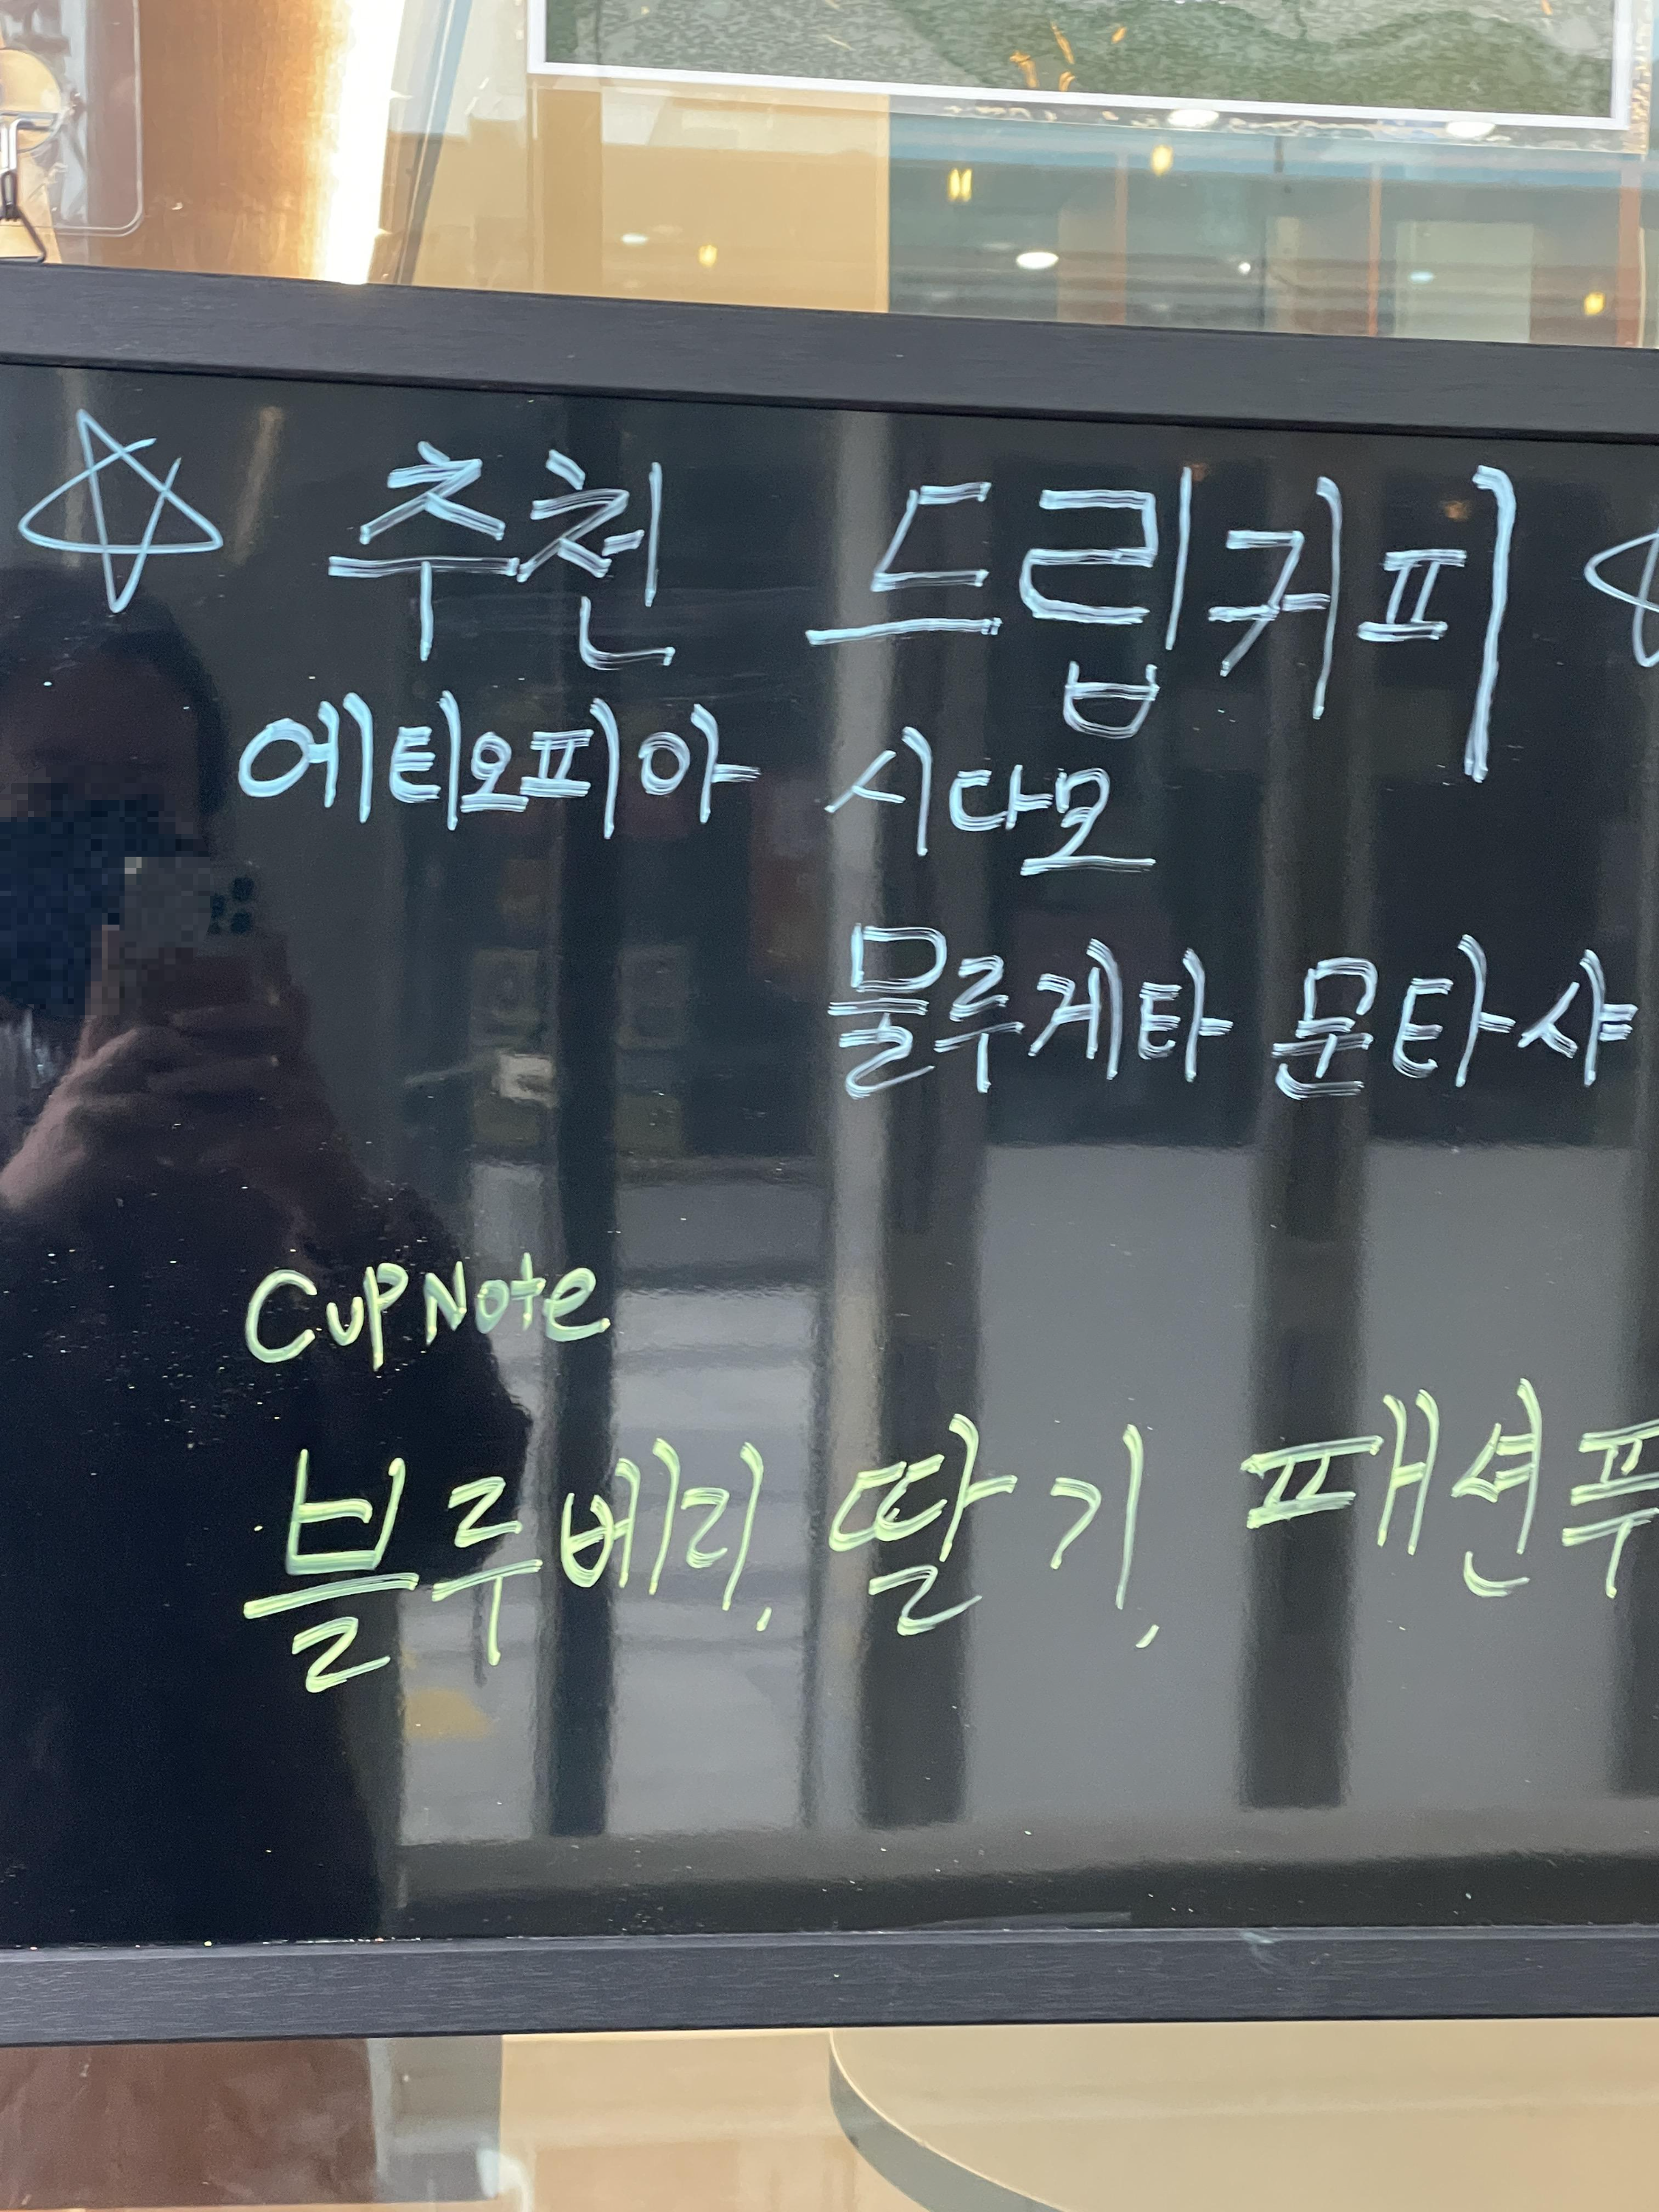 추천 드립커피
에티오피아 시다모
물루게타 문타샤
CupNote
블루베리, 딸기, 패션푸